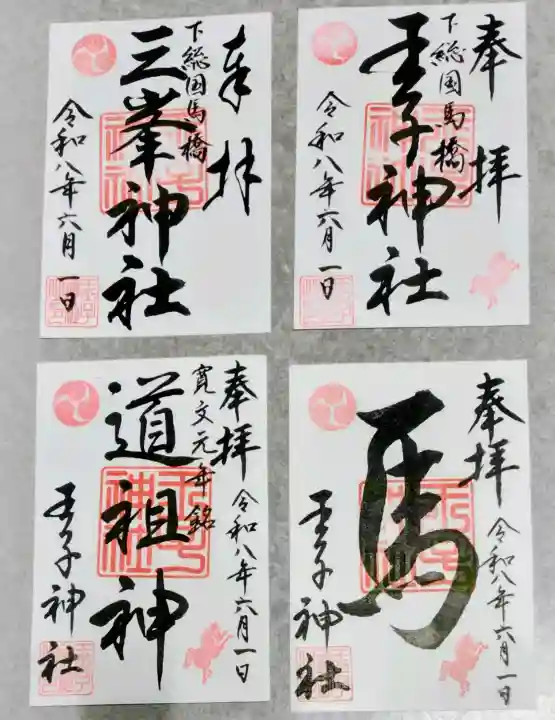 奉拝
下総国馬橋
三峯神社
令和八年六月一日
奉拝
下総国馬橋
王子神社
令和八年六月一日
奉拝
寛文元年銘
道祖神
令和八年六月一日
王子神社
奉拝
馬
令和八年六月一日
王子神社